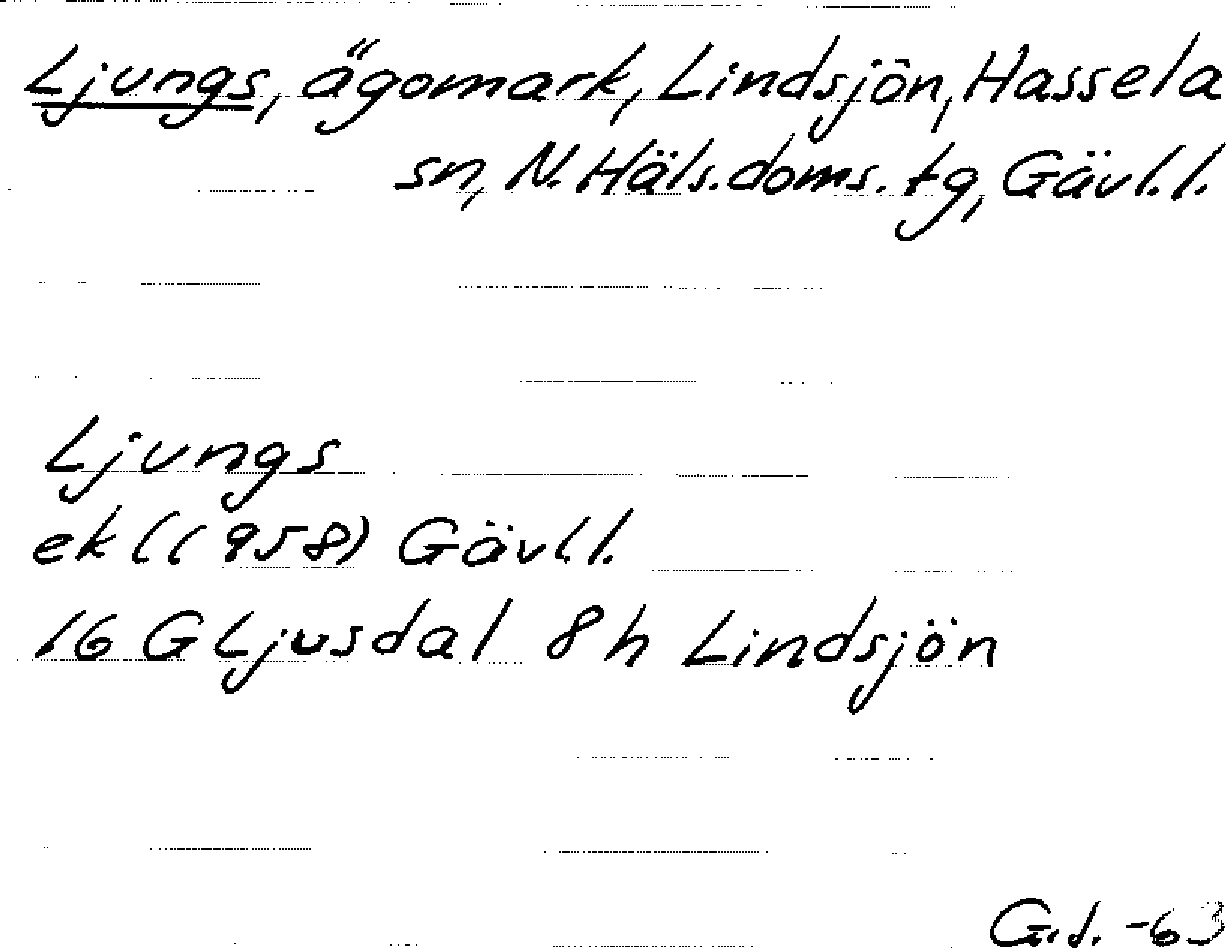 Ljungs, ägomark, Lindsjön, Hassela
sn, N. Häls. doms. tg, Gävl. l.
Ljungs
ek (1958) Gävl. l.
16 G Ljusdal 8 h Lindsjön
G.d. -63